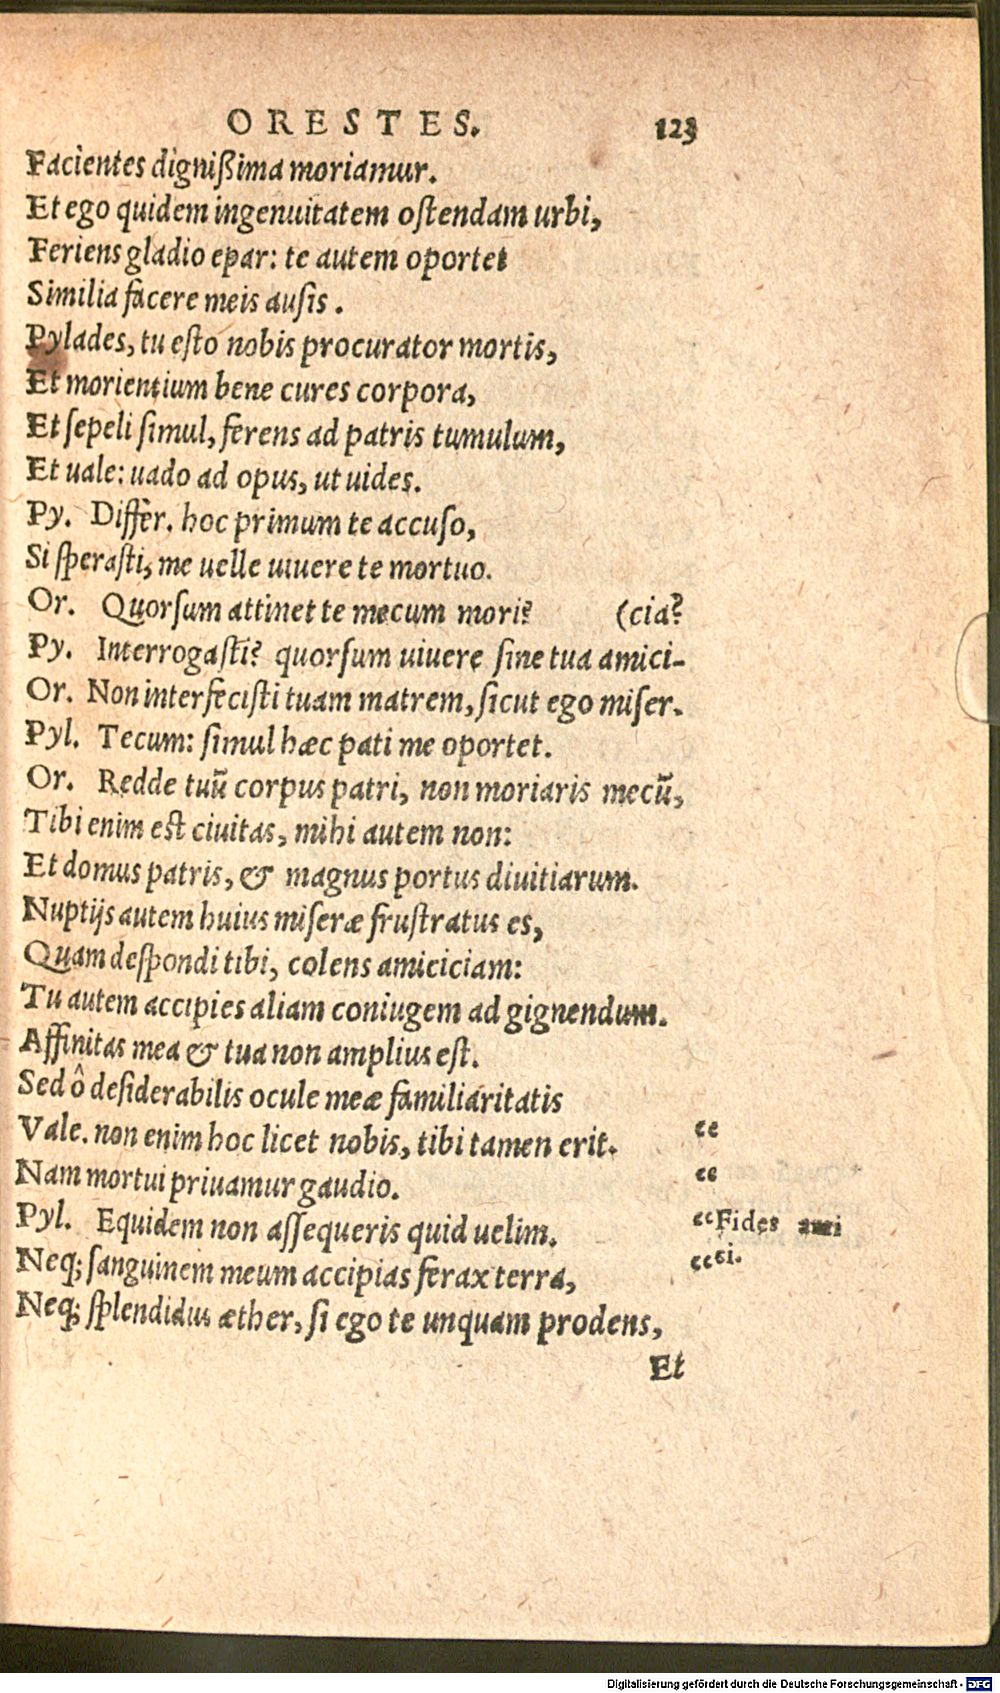 ORESTES. 123
Facientes dignißima moriamur.
Et ego quidem ingenuitatem oſtendam urbi,
Feriens gladio epar: te autem oportet
Similia facere meis auſis.
Pylades, tu eſto nobis procurator mortis,
Et morientium bene cures corpora,
Et ſepeli ſimul, ferens ad patris tumulum,
Et uale: uado ad opus, ut uides.
Py. Differ. hoc primum te accuſo,
Si ſperaſti, me uelle uiuere te mortuo.
Or. Quorſum attinet te mecum mori? (cia?
Py. Interrogaſti? quorſum uiuere ſine tua amici-
Or. Non interfeciſti tuam matrem, ſicut ego miſer.
Pyl. Tecum: ſimul hæc pati me oportet.
Or. Redde tuũ corpus patri, non moriaris mecũ,
Tibi enim eſt ciuitas, mihi autem non:
Et domus patris, & magnus portus diuitiarum.
Nuptijs autem huius miſeræ fruſtratus es,
Quam deſpondi tibi, colens amiciciam:
Tu autem accipies aliam coniugem ad gignendum.
Affinitas mea & tua non amplius eſt.
Sed ô deſiderabilis ocule meæ familiaritatis
Vale. non enim hoc licet nobis, tibi tamen erit. “
Nam mortui priuamur gaudio. “
Pyl. Equidem non aſſequeris quid uelim. “Fides ami
Neq; ſanguinem meum accipias ferax terra, “ci.
Neq; ſplendidus æther, ſi ego te unquam prodens,
Et
Digitalisierung gefördert durch die Deutsche Forschungsgemeinschaft - DFG